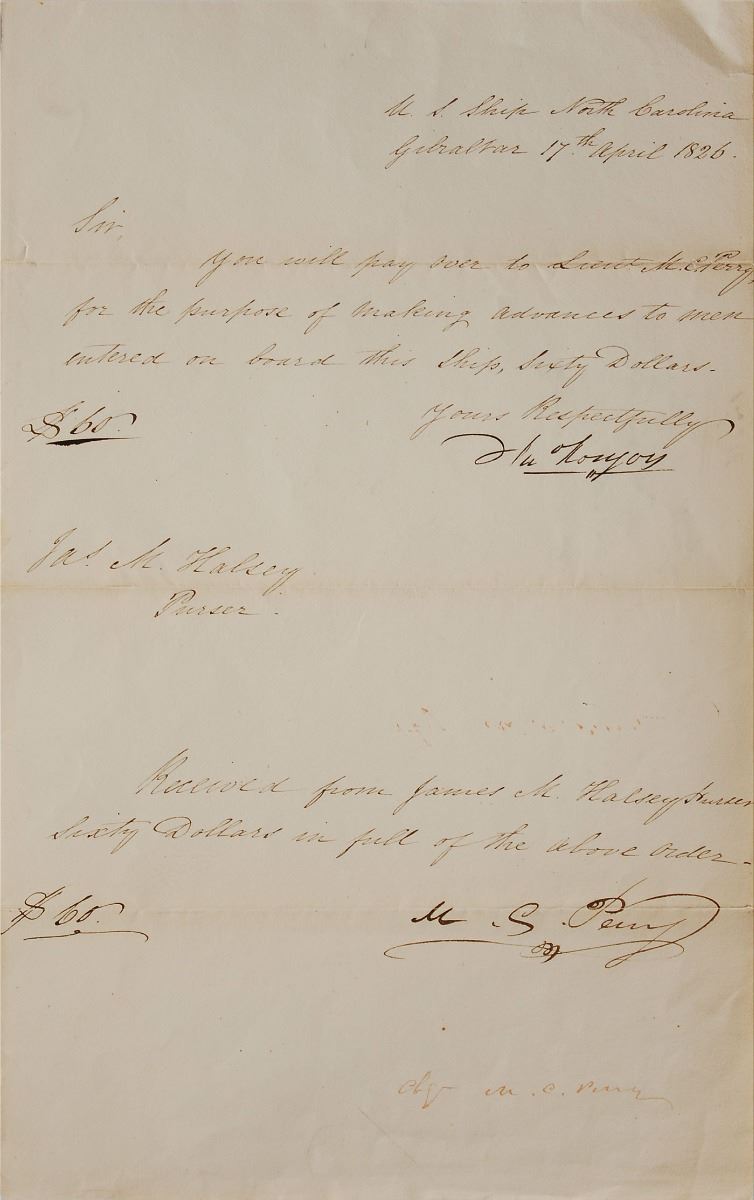 U. S. Ship North Carolina
Gibraltar 17th April 1826.
Sir,
You will pay over to Lieut M. C. Perry,
for the purpose of making advances to men
entered on board this Ship, Sixty Dollars.
$60.
Yours Respectfully
Jas. M. Halsey
Purser.
Received from James M. Halsey Purser
Sixty Dollars in full of the above order.
$60.
M. C. Perry
M. C. Perry